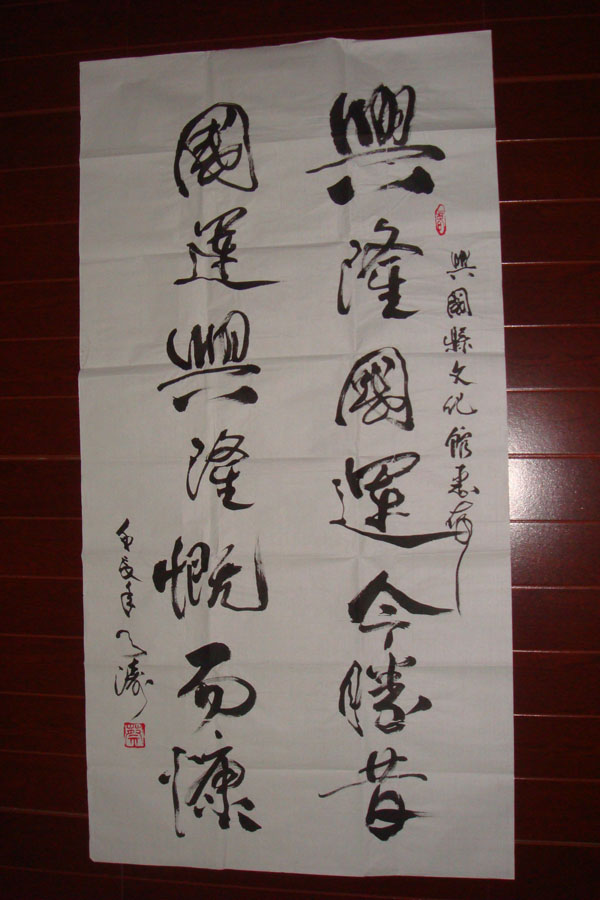 興國縣文化館惠存
興隆國運今勝昔
國運興隆慨而慷
壬辰年 濤